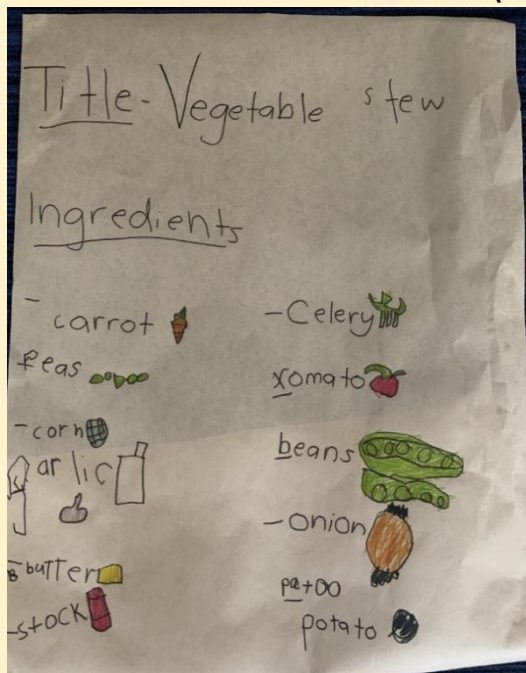 Title - Vegetable stew
Ingredients
- carrot
Peas
- corn
garlic
B butter
- stock
- Celery
Tomato
beans
- onion
patoo
potato